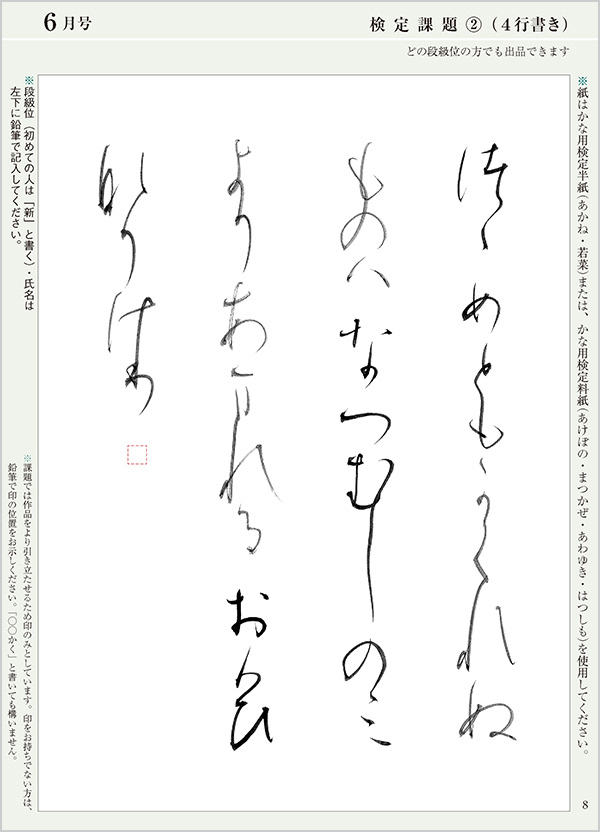 6月号
検定課題②(4行書き)
どの段級位の方でも出品できます
※紙はかな用検定半紙(あかね・若菜)または、かな用検定料紙(あけぼの・まつかぜ・あわゆき・はつしも)を使用してください。
つゝめともかくれぬ
ものハなつむしのみ
よりあまれるおもひ
なりけり
※段級位(初めての人は「新」と書く)・氏名は
左下に鉛筆で記入してください。
※課題では作品をより引き立たせるため印のみとしています。印をお持ちでない方は、
鉛筆で印の位置をお示しください。「○○かく」と書いても構いません。
8